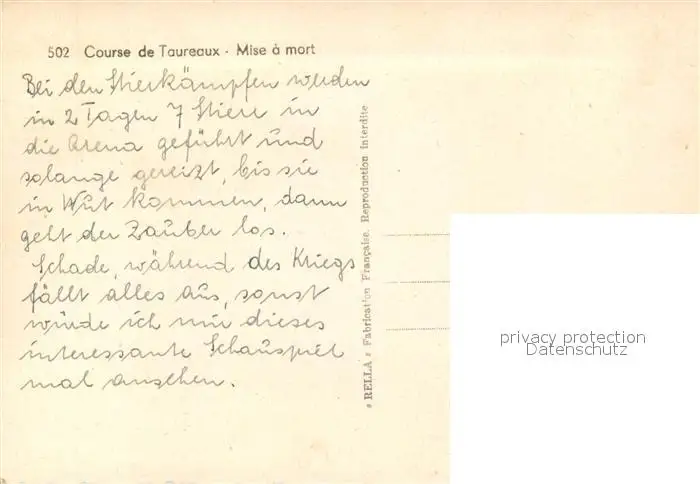 502 Course de Taureaux - Mise à mort
Bei den Stierkämpfen werden
in 2 Tagen 7 Stiere in
die Arena geführt und
solange gereizt, bis sie
in Wut kommen, dann
geht der Zauber los.
Schade, während des Kriegs
fällt alles aus, sonst
würde ich mir dieses
interessante Schauspiel
mal ansehen.
« RELLA » Fabrication Française. Reproduction Interdite
privacy protection
Datenschutz